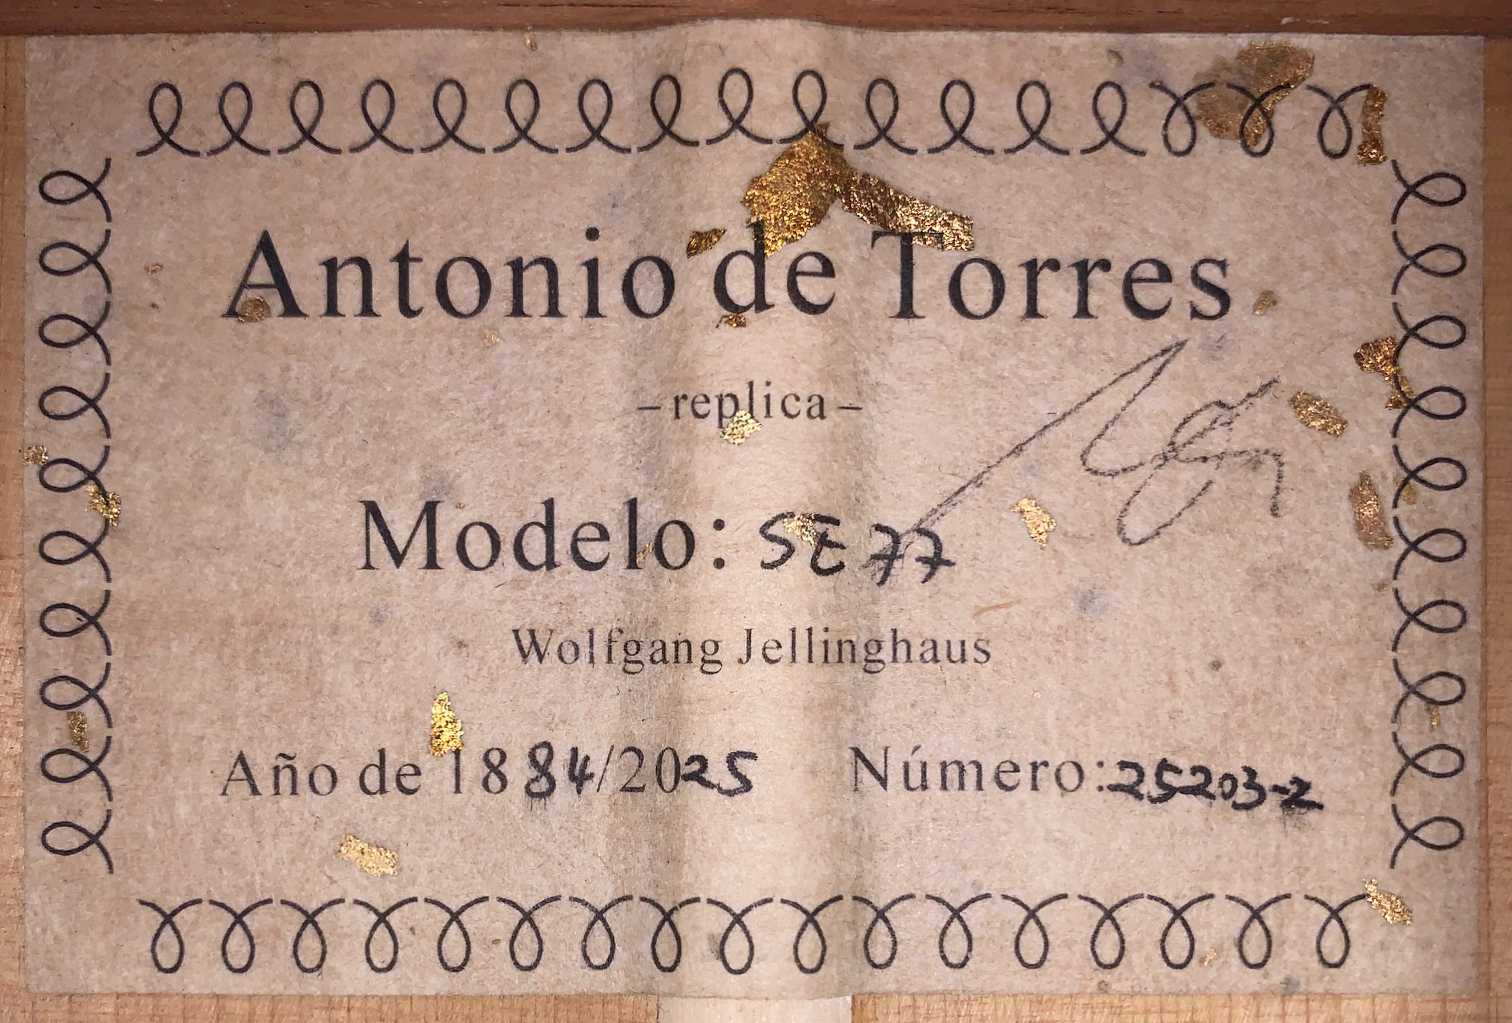 Antonio de Torres
-replica-
Modelo: SE 77
Wolfgang Jellinghaus
Año de 1884/2025 Número:25203-2